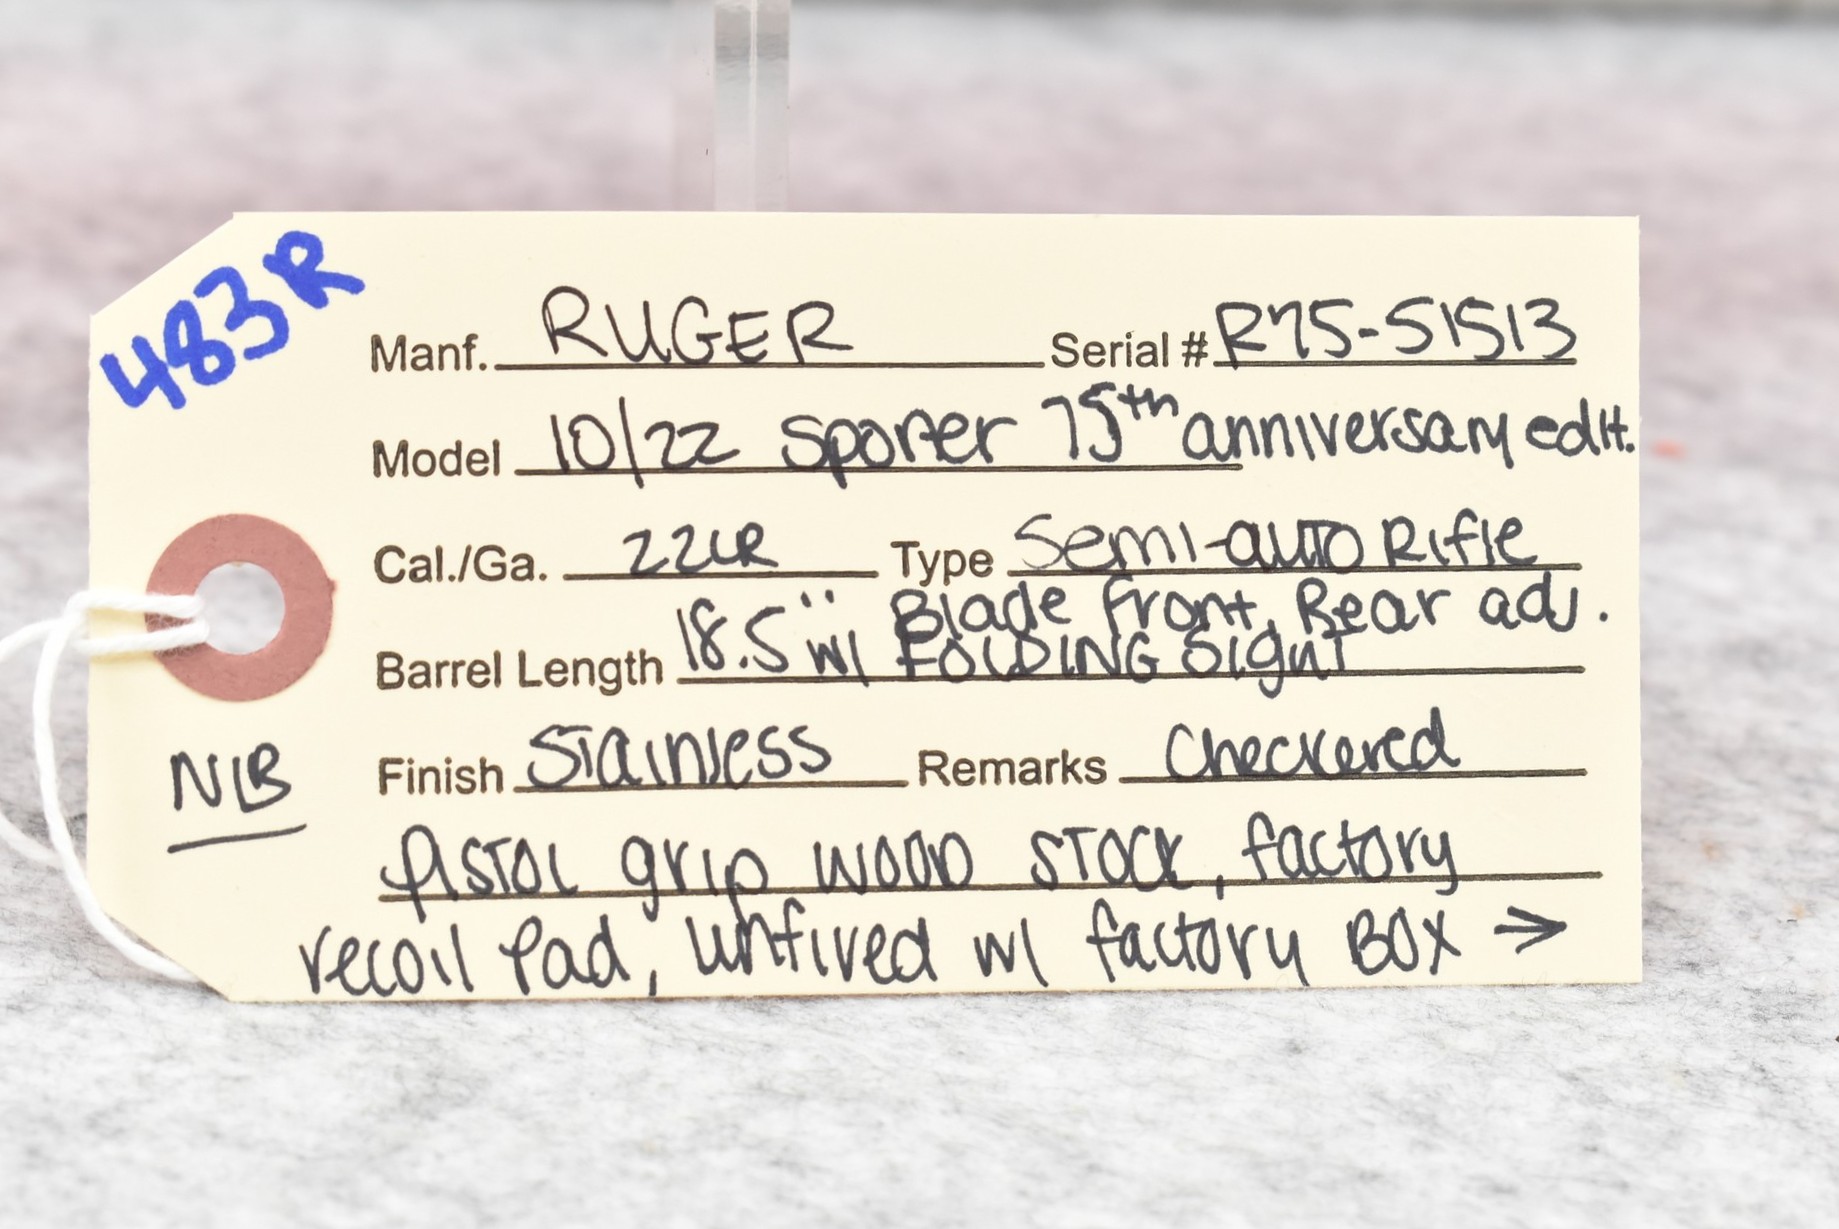 483R
Manf. RUGER Serial # R75-51513
Model 10/22 Sporter 75th anniversary edit.
Cal./Ga. 22LR Type Semi-auto Rifle
Barrel Length 18.5" w/ Blade front, Rear adj.
FOLDING Sight
NIB
Finish Stainless Remarks Checkered
Pistol grip wood stock, factory
recoil Pad, unfired w/ factory BOX →